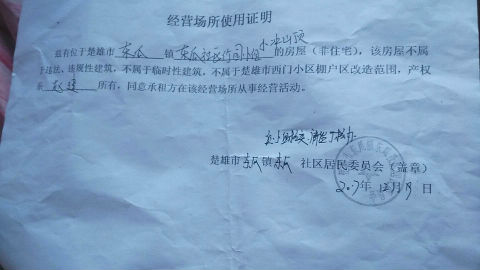 经营场所使用证明
兹有位于楚雄市东瓜镇东瓜社区 小组 的房屋（非住宅），该房屋不属
于违法、违规性建筑，不属于临时性建筑，不属于楚雄市西门小区棚户区改造范围，产权
系 所有，同意承租方在该经营场所从事经营活动。
楚雄市东瓜镇东瓜社区居民委员会（盖章）
2017年12月19日